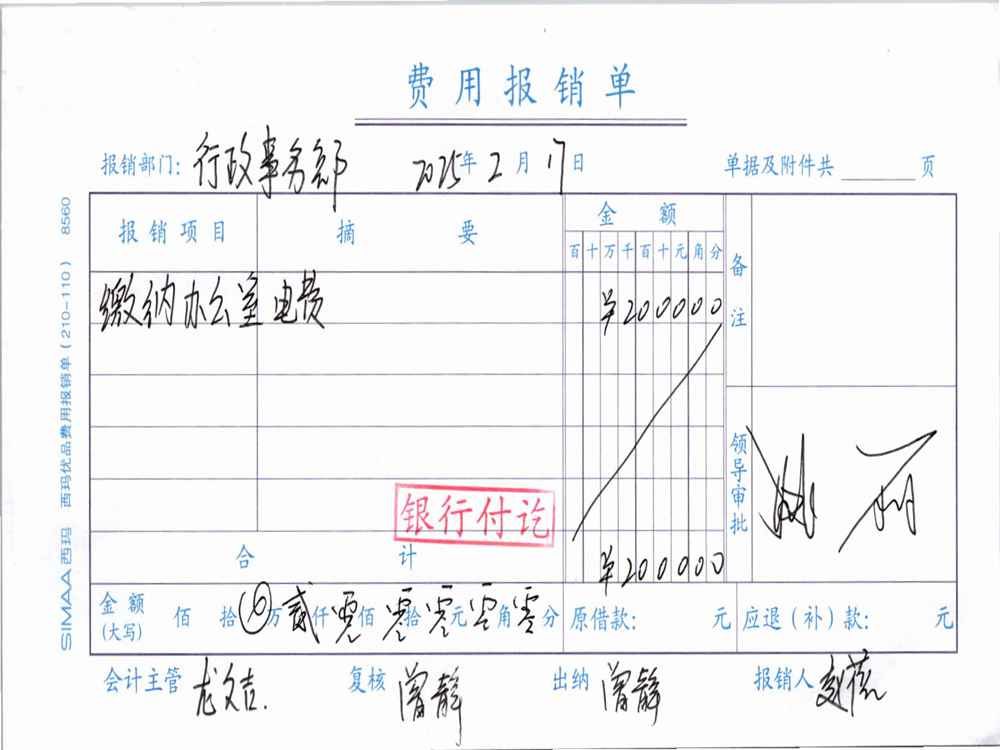 费用报销单
报销部门：行政事务部 2025年2月17日 单据及附件共 页
报销项目 摘要 金额 备注
百十万千百十元角分
缴纳办公室电费 ¥200000
领导审批
银行付讫
合计 ¥200000
金额(大写) 佰 拾 万贰仟零佰零拾零元零角零分 原借款： 元 应退（补）款： 元
会计主管 龙文吉. 复核 曾静 出纳 曾静 报销人
SIMAA西玛 西玛优品费用报销单（210-110） 8560